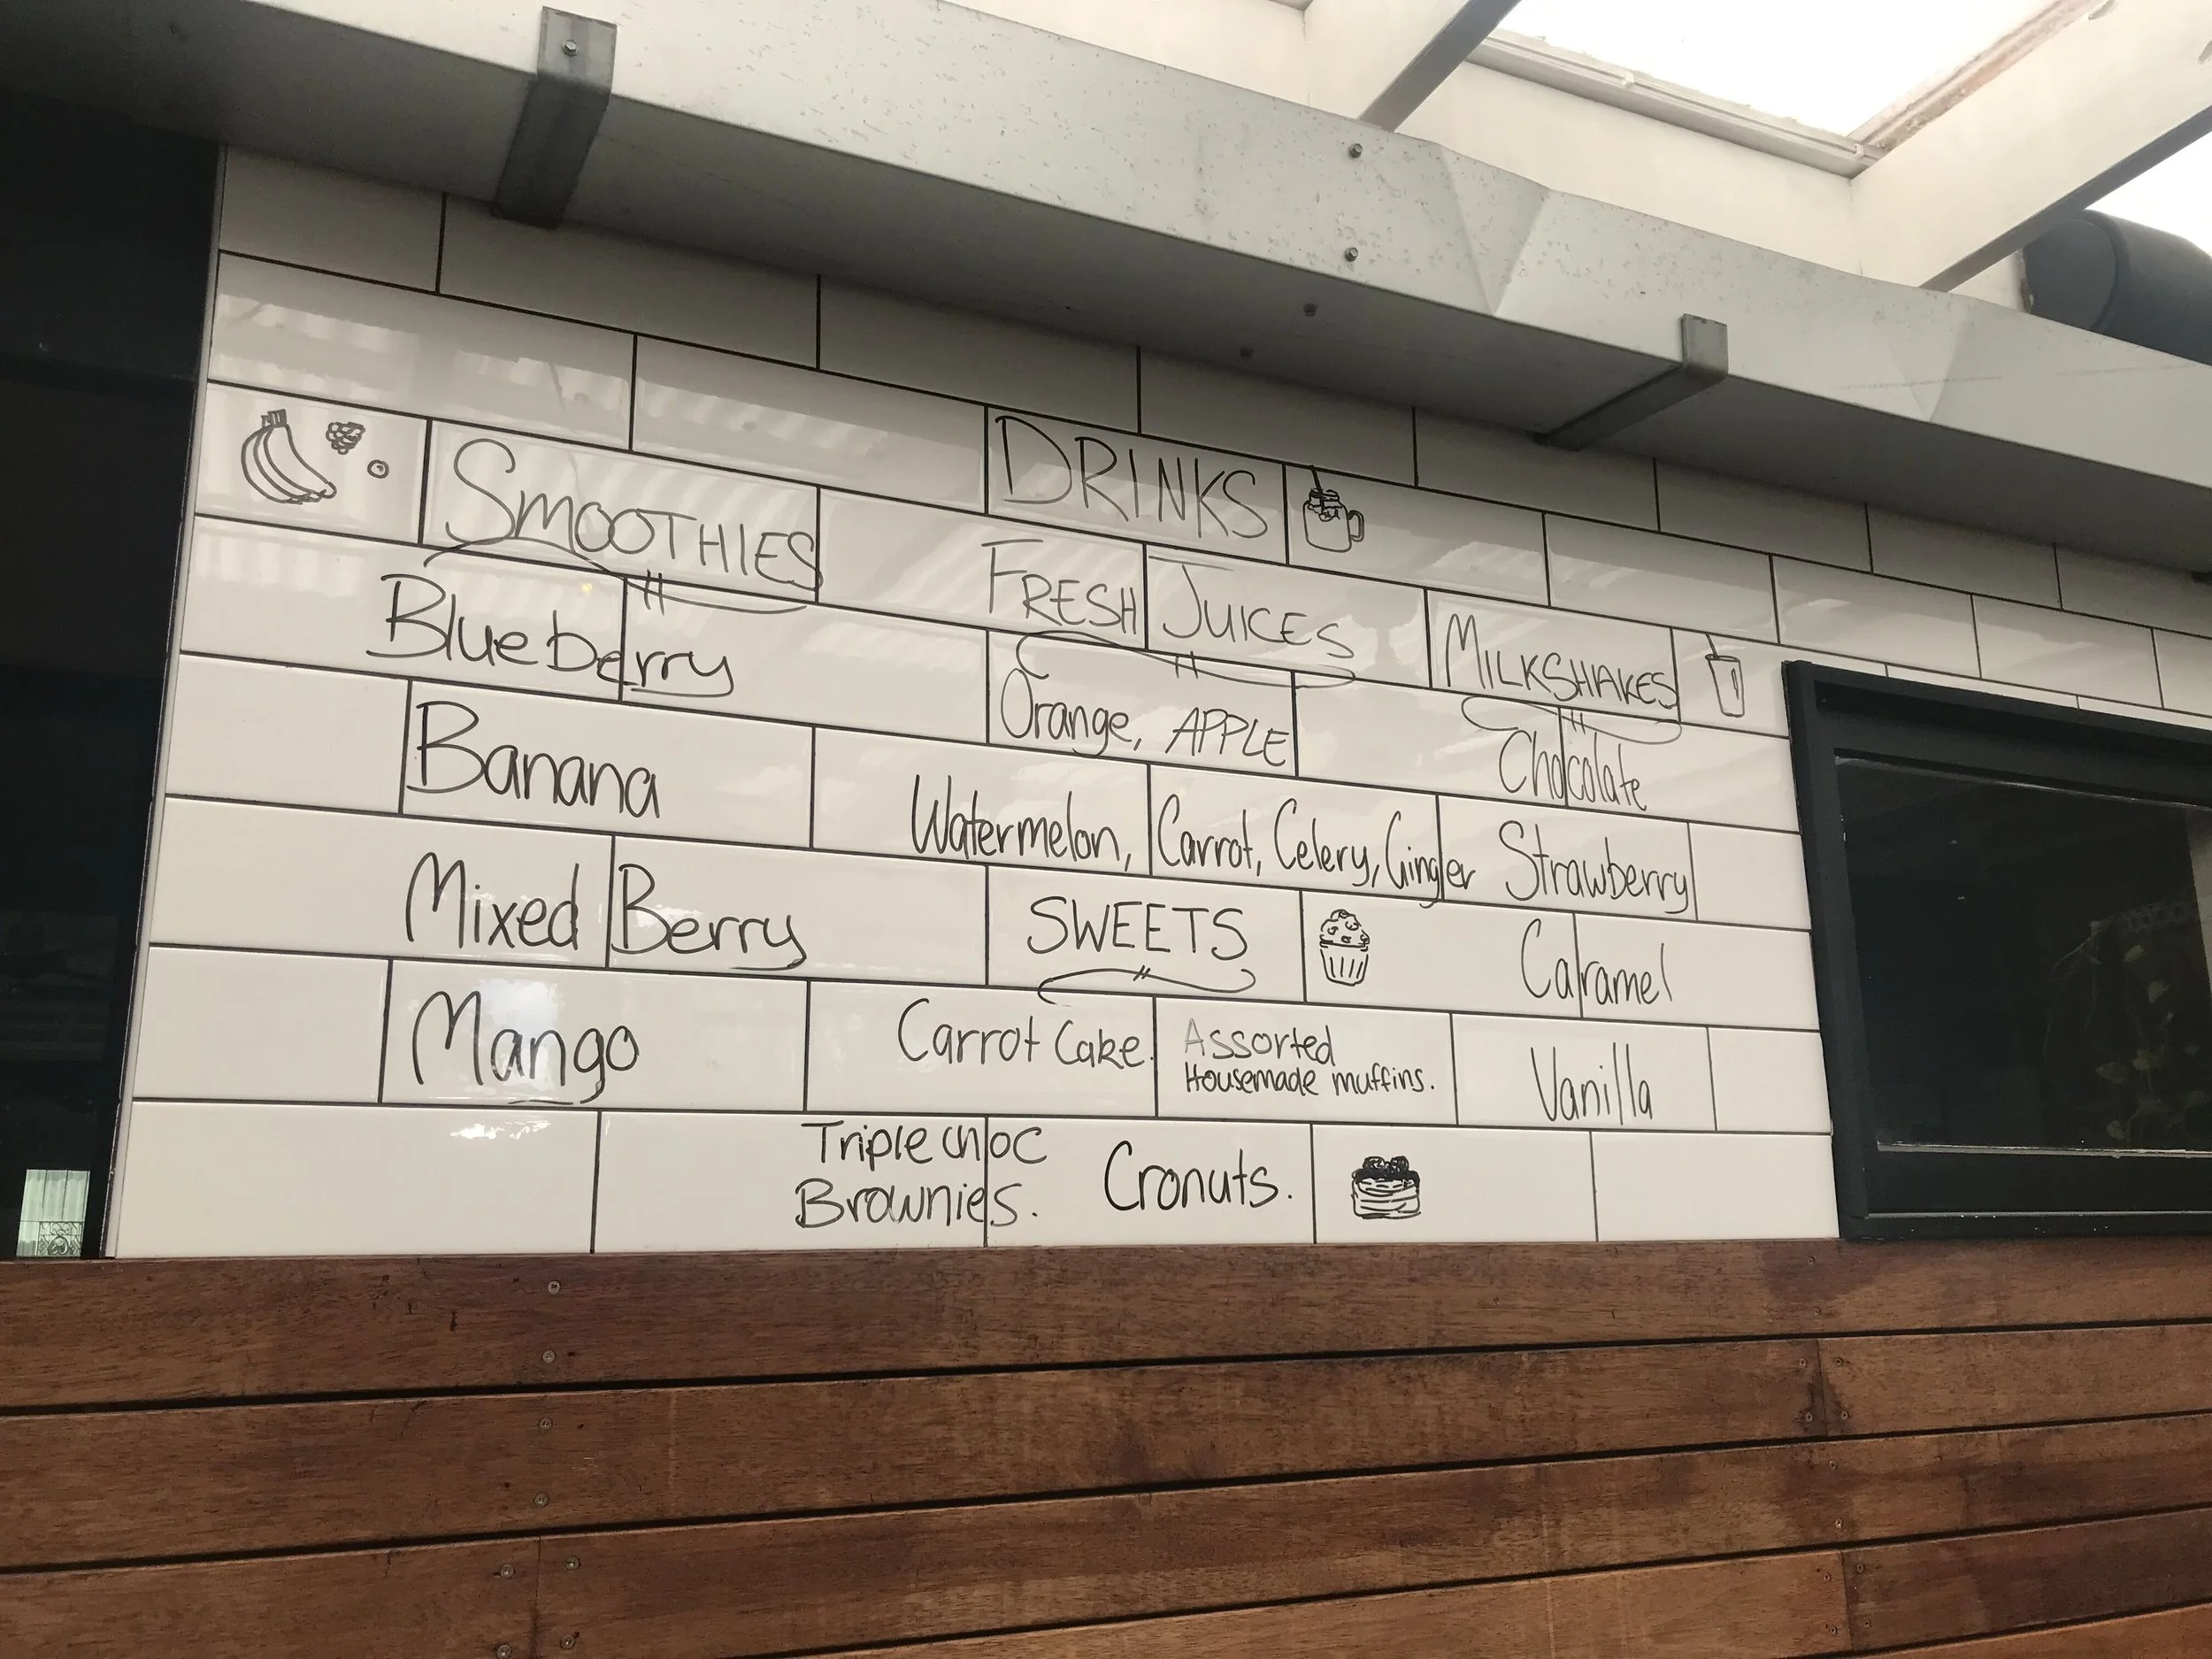 DRINKS
SMOOTHIES
Blueberry
Banana
Mixed Berry
Mango
FRESH JUICES
Orange, APPLE
Watermelon, Carrot, Celery, Ginger
MILKSHAKES
Chocolate
Strawberry
Caramel
Vanilla
SWEETS
Carrot Cake.
Assorted
Housemade muffins.
Triple choc
Brownies.
Cronuts.